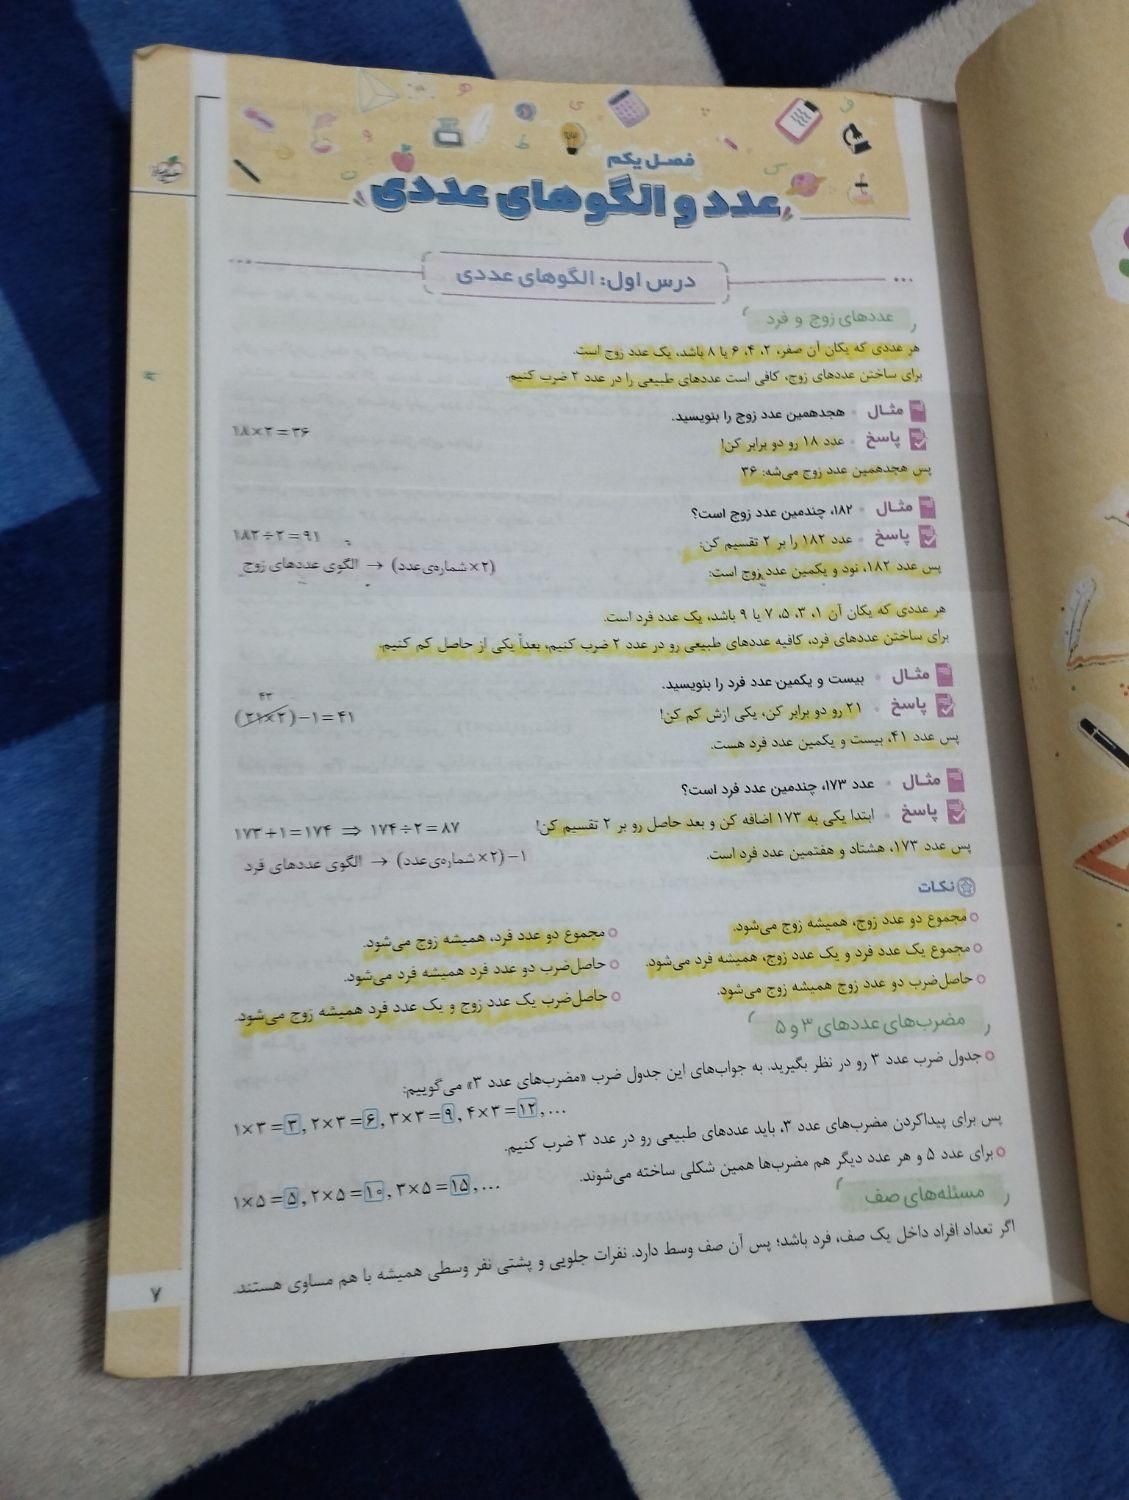 فصل یکم
عدد و الگوهای عددی
درس اول: الگوهای عددی
عددهای زوج و فرد
هر عددی که یکان آن صفر، ۲، ۴، ۶ یا ۸ باشد، یک عدد زوج است.
برای ساختن عددهای زوج، کافی است عددهای طبیعی را در عدد ۲ ضرب کنیم.
مثال • هجدهمین عدد زوج را بنویسید.
پاسخ • عدد ۱۸ رو دو برابر کن! ۱۸×۲=۳۶
پس هجدهمین عدد زوج می‌شه: ۳۶
مثال • ۱۸۲، چندمین عدد زوج است؟
پاسخ • عدد ۱۸۲ را بر ۲ تقسیم کن: ۱۸۲÷۲=۹۱
پس عدد ۱۸۲، نود و یکمین عدد زوج است: (۲×شماره‌ی عدد) → الگوی عددهای زوج
هر عددی که یکان آن ۱، ۳، ۵، ۷ یا ۹ باشد، یک عدد فرد است.
برای ساختن عددهای فرد، کافیه عددهای طبیعی رو در عدد ۲ ضرب کنیم، بعداً یکی از حاصل کم کنیم.
مثال • بیست و یکمین عدد فرد را بنویسید.
پاسخ • ۲۱ رو دو برابر کن، یکی ازش کم کن! (۲۱×۲)−۱=۴۱
پس عدد ۴۱، بیست و یکمین عدد فرد هست.
مثال • عدد ۱۷۳، چندمین عدد فرد است؟
پاسخ • ابتدا یکی به ۱۷۳ اضافه کن و بعد حاصل رو بر ۲ تقسیم کن! ۱۷۳+۱=۱۷۴ ⇒ ۱۷۴÷۲=۸۷
پس عدد ۱۷۳، هشتاد و هفتمین عدد فرد است. (۲×شماره‌ی عدد)−۱ → الگوی عددهای فرد
نکات
مجموع دو عدد زوج، همیشه زوج می‌شود. مجموع دو عدد فرد، همیشه زوج می‌شود.
مجموع یک عدد فرد و یک عدد زوج، همیشه فرد می‌شود. حاصل‌ضرب دو عدد فرد همیشه فرد می‌شود.
حاصل‌ضرب دو عدد زوج همیشه زوج می‌شود. حاصل‌ضرب یک عدد زوج و یک عدد فرد همیشه زوج می‌شود.
مضرب‌های عددهای ۳ و ۵
جدول ضرب عدد ۳ رو در نظر بگیرید. به جواب‌های این جدول ضرب «مضرب‌های عدد ۳» می‌گوییم:
۱×۳=۳, ۲×۳=۶, ۳×۳=۹, ۴×۳=۱۲, ...
پس برای پیداکردن مضرب‌های عدد ۳، باید عددهای طبیعی رو در عدد ۳ ضرب کنیم.
برای عدد ۵ و هر عدد دیگر هم مضرب‌ها همین شکلی ساخته می‌شوند. ۱×۵=۵, ۲×۵=۱۰, ۳×۵=۱۵, ...
مسئله‌های صف
اگر تعداد افراد داخل یک صف، فرد باشد؛ پس آن صف وسط دارد. نفرات جلویی و پشتی نفر وسطی همیشه با هم مساوی هستند.
۷